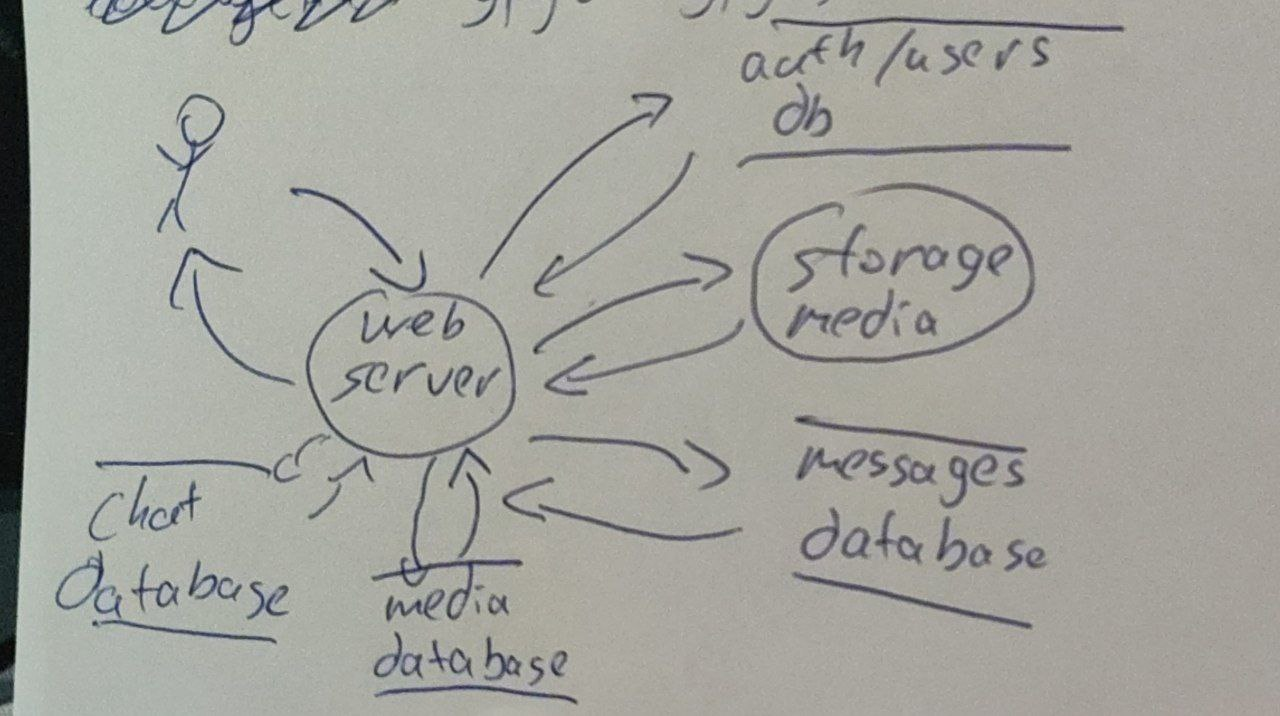 auth/users
db
storage
media
web
server
messages
database
Chat
Database
media
database